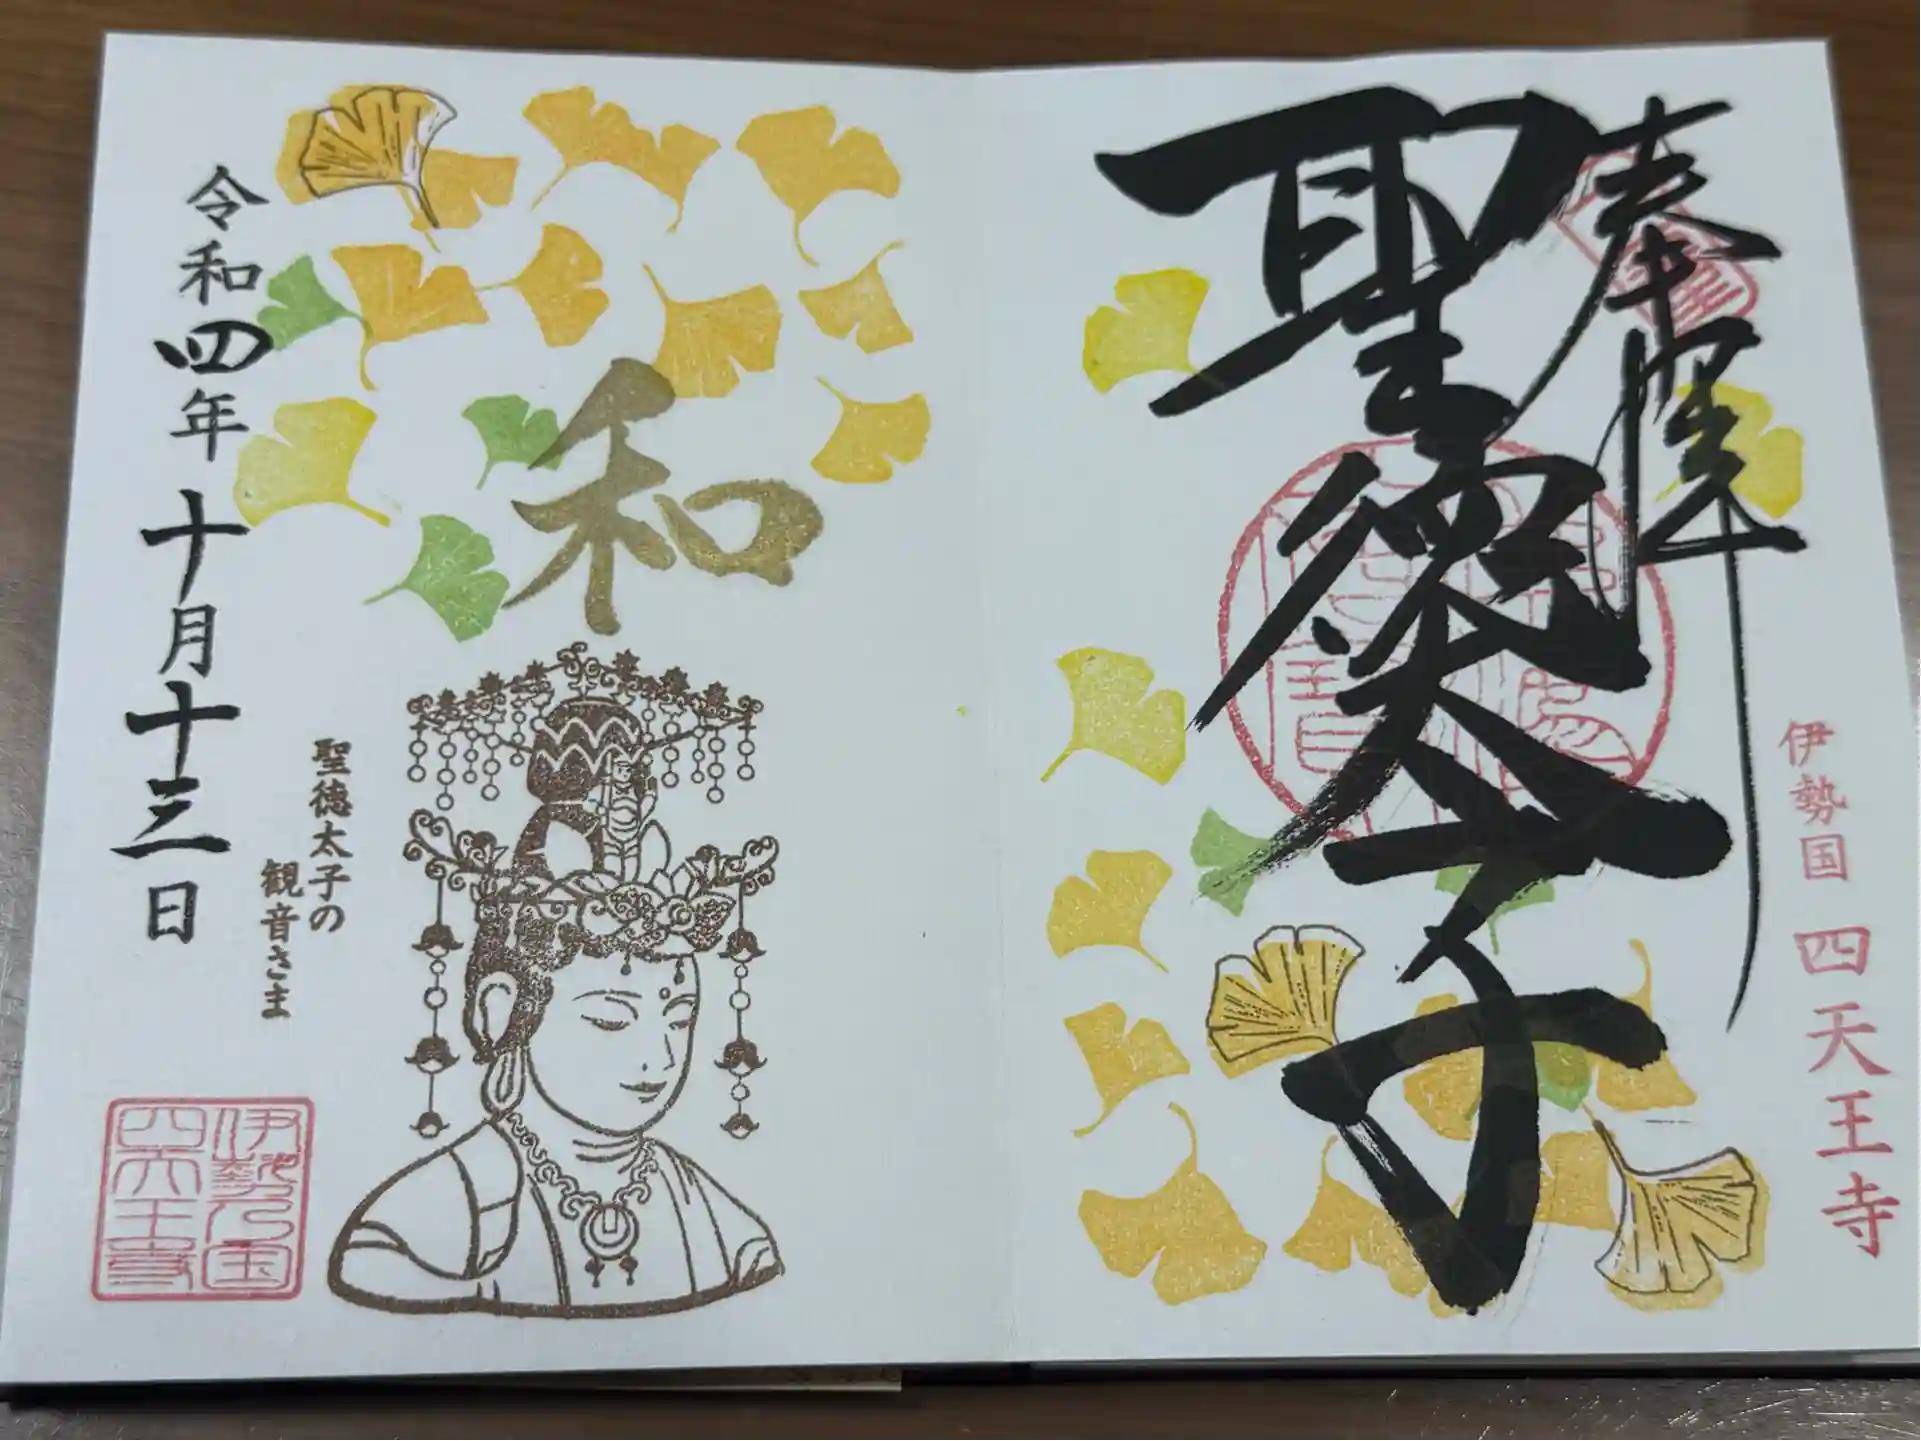 奉拝
聖徳太子
伊勢国 四天王寺
和
聖徳太子の
観音さま
令和四年十月十三日
伊勢乃国
四天王寺